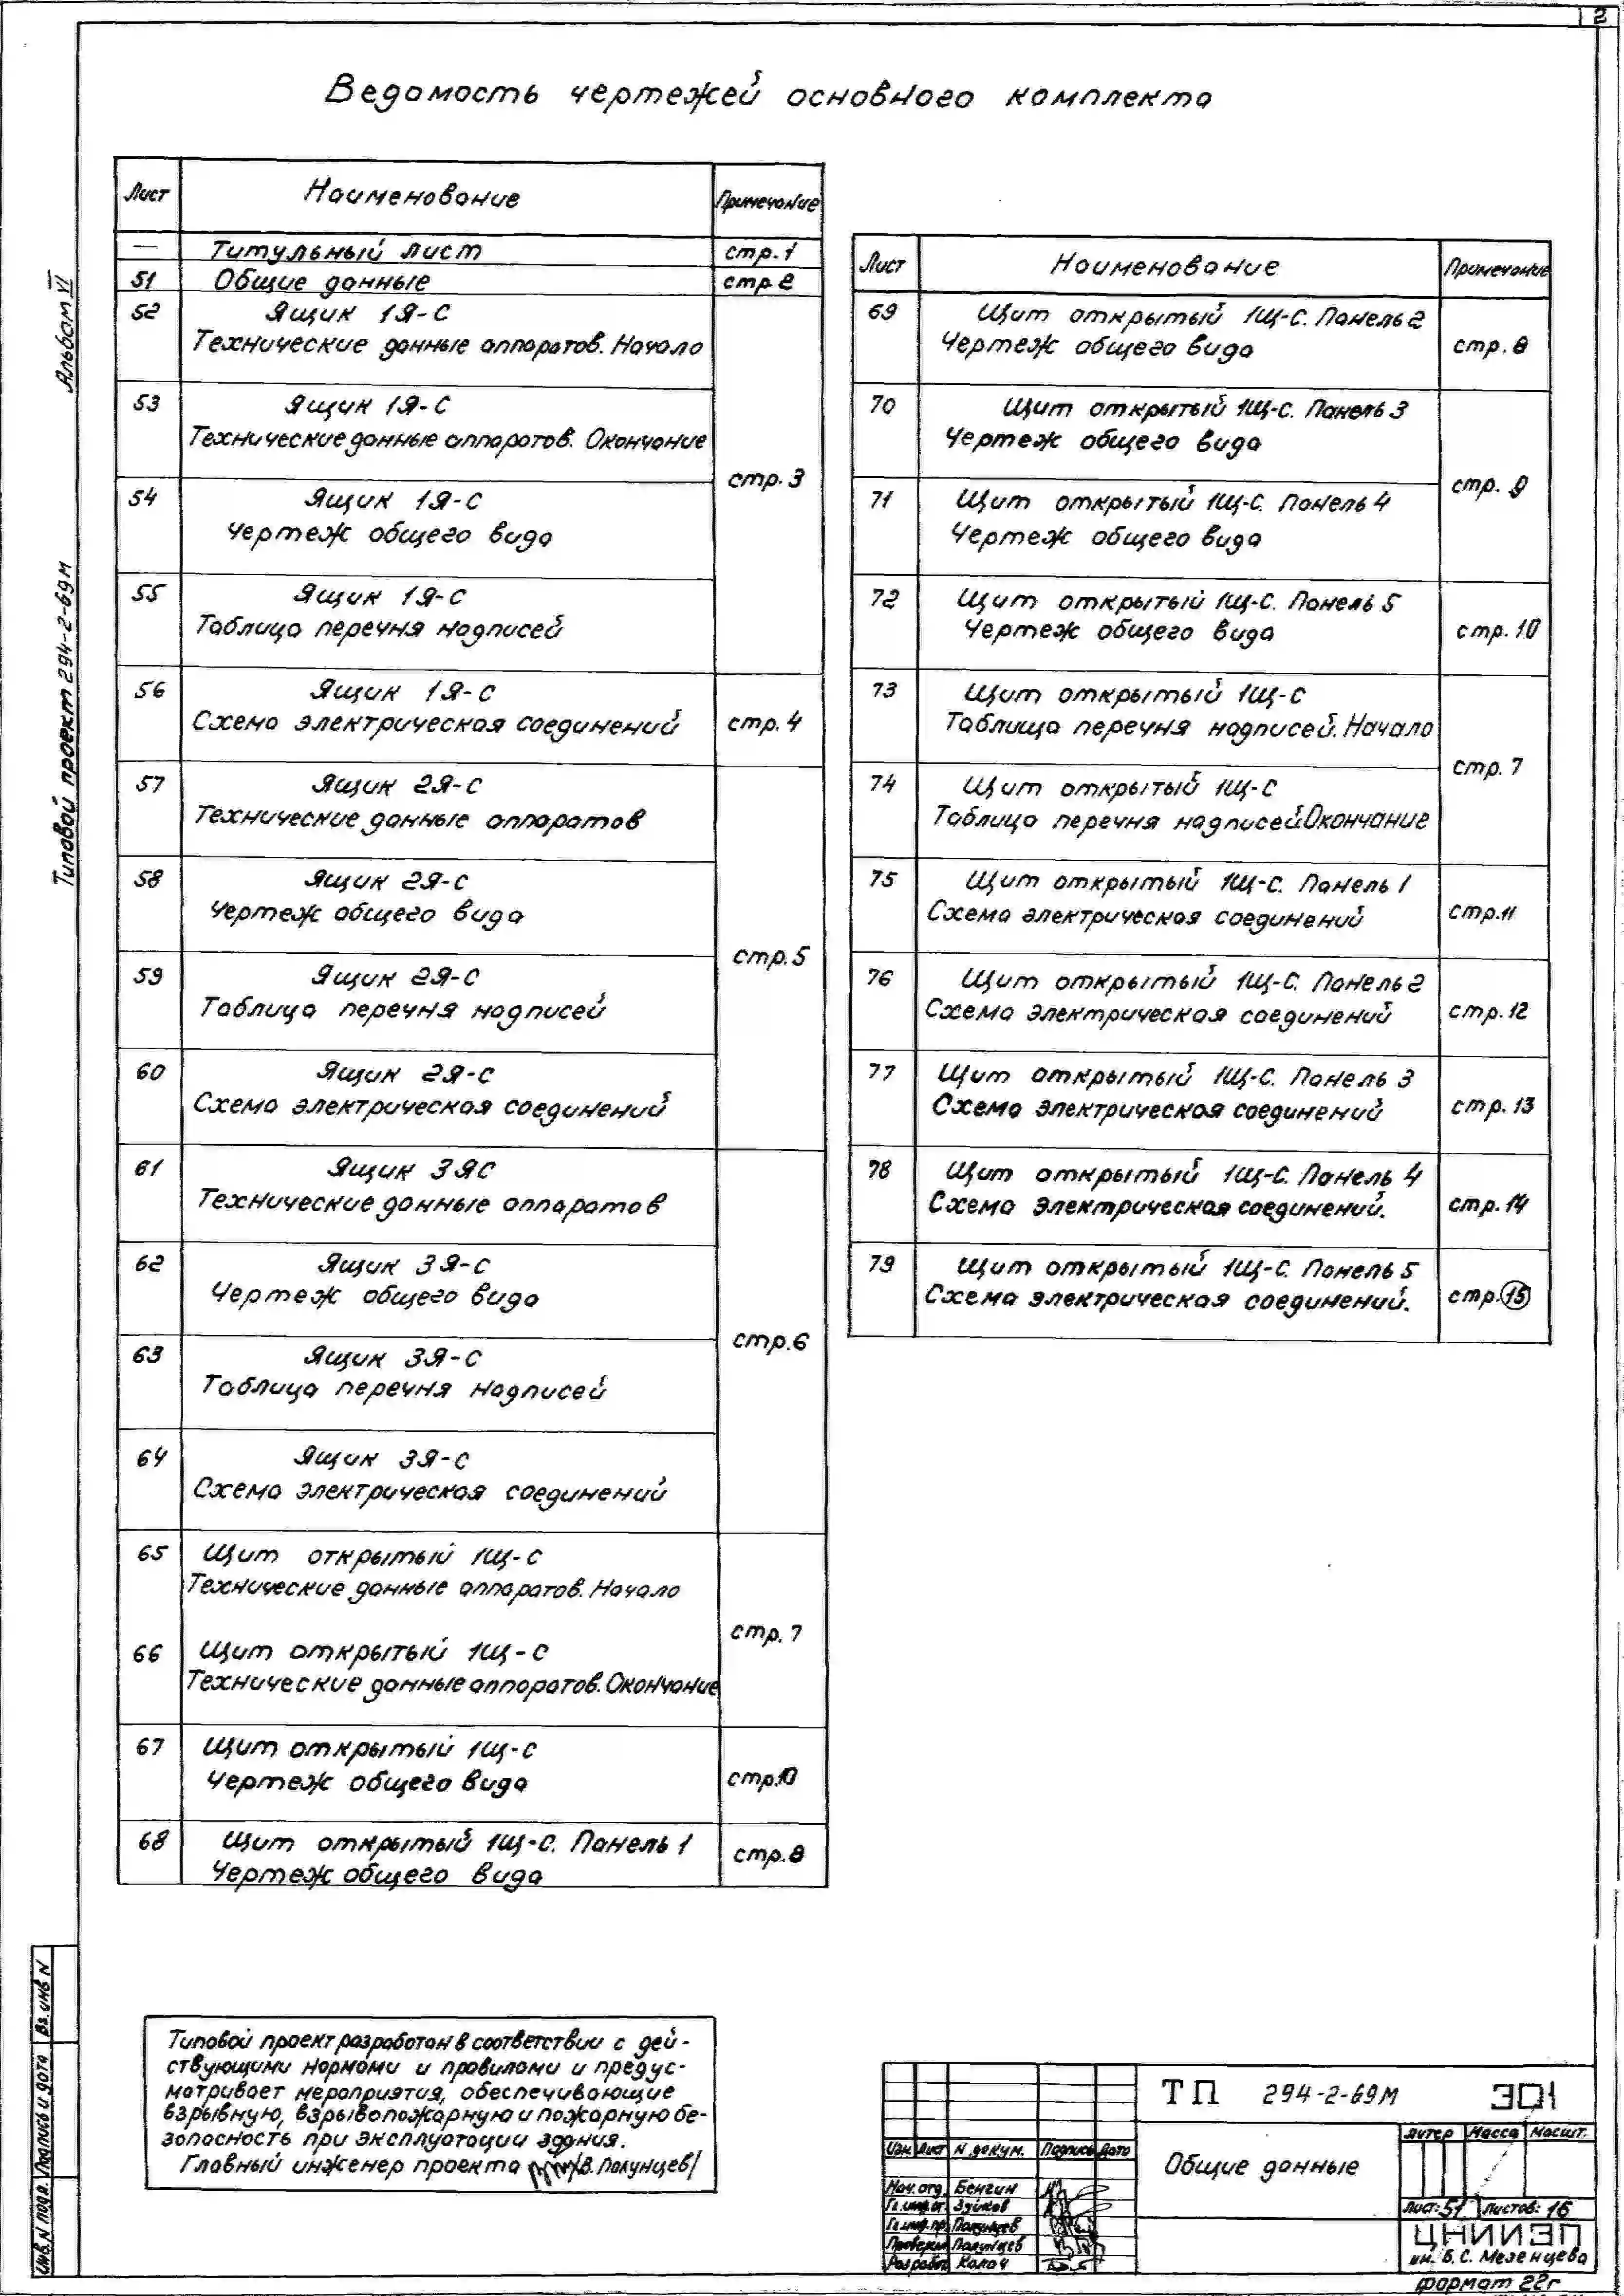 2
Ведомость чертежей основного комплекта
Альбом VI
Типовой проект 294-2-69м
Лист Наименование Примечание
— Титульный лист стр.1
51 Общие данные стр 2
52 Ящик 1Я-С
Технические данные аппаратов. Начало
53 Ящик 1Я-С
Технические данные аппаратов. Окончание
стр.3
54 Ящик 1Я-С
Чертеж общего вида
55 Ящик 1Я-С
Таблица перечня надписей
56 Ящик 1Я-С
Схема электрическая соединений стр.4
57 Ящик 2Я-С
Технические данные аппаратов
58 Ящик 2Я-С
Чертеж общего вида
стр.5
59 Ящик 2Я-С
Таблица перечня надписей
60 Ящик 2Я-С
Схема электрическая соединений
61 Ящик 3ЯС
Технические данные аппаратов
62 Ящик 3Я-С
Чертеж общего вида
стр.6
63 Ящик 3Я-С
Таблица перечня надписей
64 Ящик 3Я-С
Схема электрическая соединений
65 Щит открытый 1Щ-С
Технические данные аппаратов. Начало
стр. 7
66 Щит открытый 1Щ-С
Технические данные аппаратов. Окончание
67 Щит открытый 1Щ-С
Чертеж общего вида стр.10
68 Щит открытый 1Щ-С. Панель 1
Чертеж общего вида стр.8
Лист Наименование Примечание
69 Щит открытый 1Щ-С. Панель 2
Чертеж общего вида стр.8
70 Щит открытый 1Щ-С. Панель 3
Чертеж общего вида
стр. 9
71 Щит открытый 1Щ-С. Панель 4
Чертеж общего вида
72 Щит открытый 1Щ-С. Панель 5
Чертеж общего вида стр.10
73 Щит открытый 1Щ-С
Таблица перечня надписей. Начало
стр. 7
74 Щит открытый 1Щ-С
Таблица перечня надписей. Окончание
75 Щит открытый 1Щ-С. Панель 1
Схема электрическая соединений стр.11
76 Щит открытый 1Щ-С. Панель 2
Схема электрическая соединений стр.12
77 Щит открытый 1Щ-С. Панель 3
Схема электрическая соединений стр. 13
78 Щит открытый 1Щ-С. Панель 4
Схема электрическая соединений. стр.14
79 Щит открытый 1Щ-С. Панель 5
Схема электрическая соединений. стр.15
Типовой проект разработан в соответствии с дей-
ствующими нормами и правилами и предус-
матривает мероприятия, обеспечивающие
взрывную, взрывопожарную и пожарную бе-
зопасность при эксплуатации здания.
Главный инженер проекта /В. Полунцев/
Инв.N подл. Подпись и дата Вз.инв N
ТП 294-2-69м ЭО1
Изм. Лист N докум. Подпись Дата
Нач. отд. Бенгин
Гл.инж.от. Зуйков
Гл.инж.пр. Полунцев
Проверил Полунцев
Разработ. Калач
Общие данные
Литер Масса Масшт.
Лист: 51 Листов: 16
ЦНИИЭП
им. Б.С. Мезенцева
формат 22г